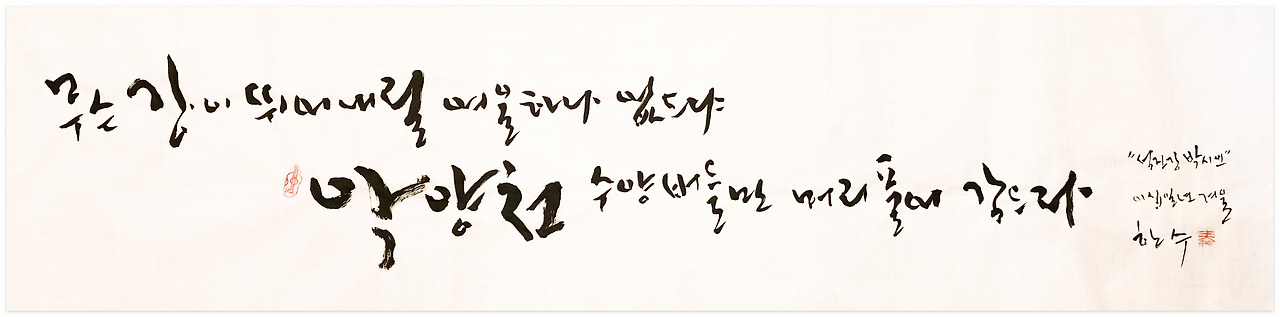 무슨 강이 뛰어내릴 여울 하나 없드냐
악양천 수양버들만 머리 풀어 감드라
"섬진강 박시인"
이십일년 겨울
한수